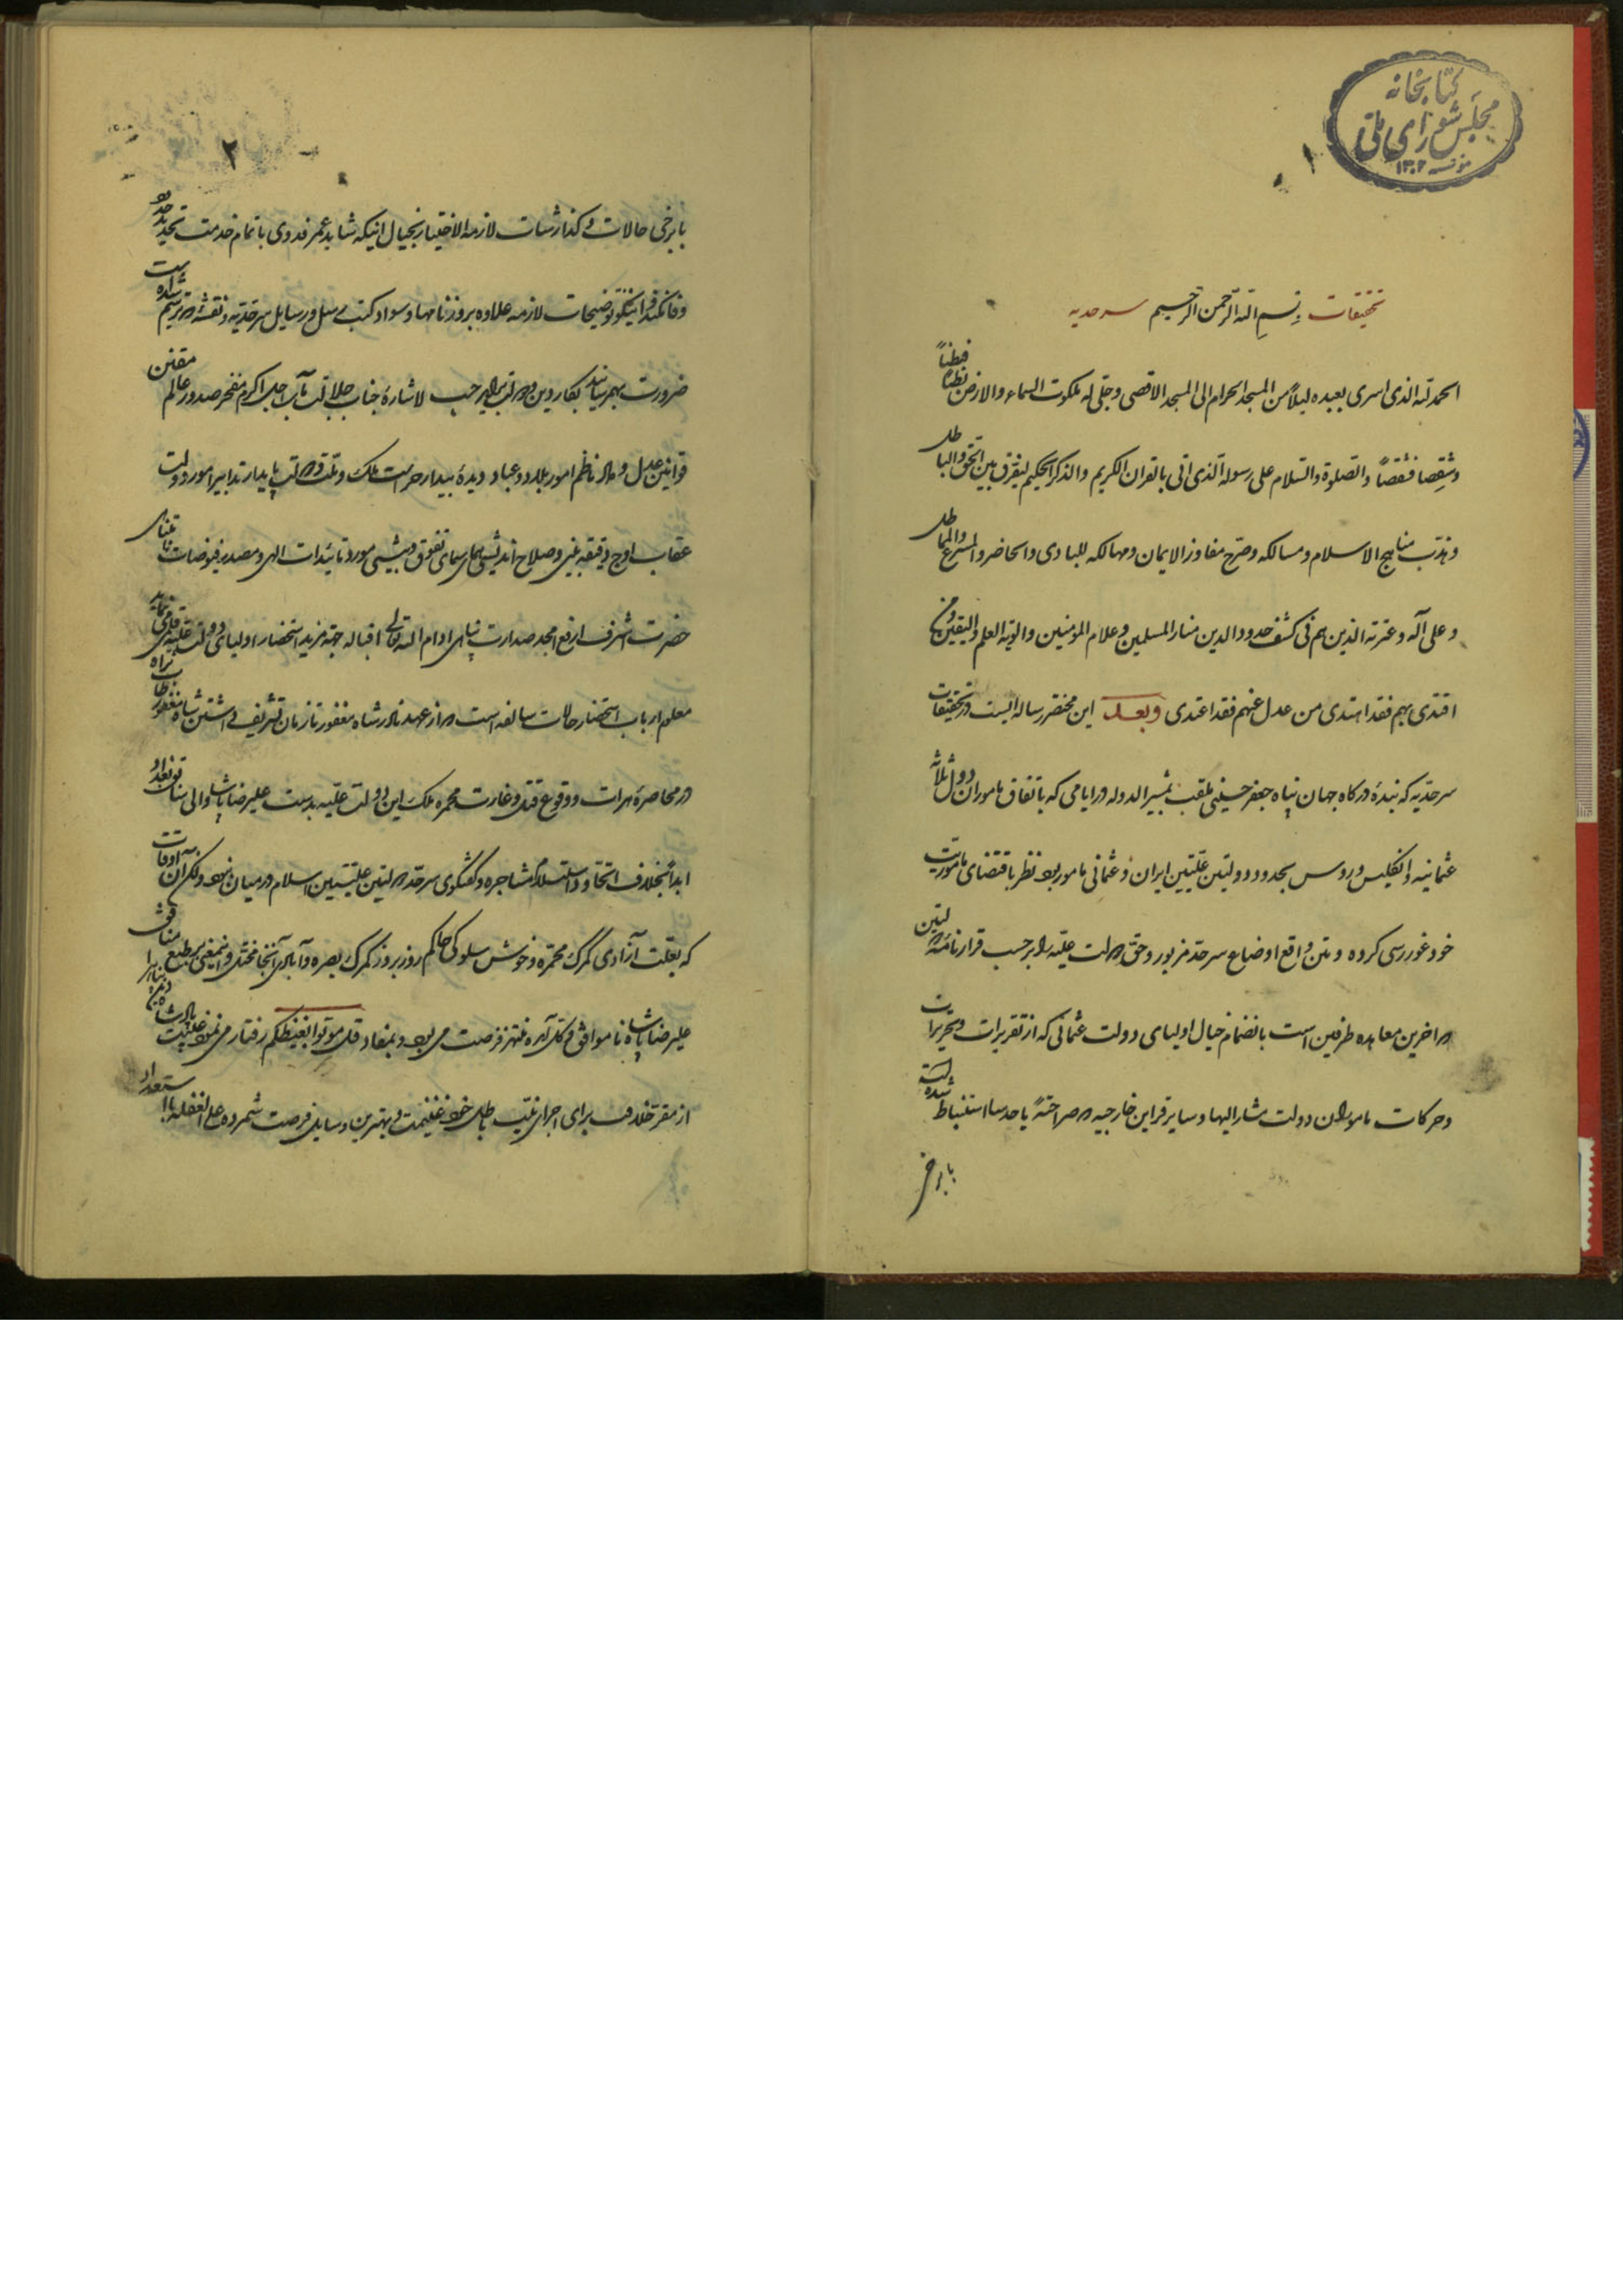 کتابخانه
مجلس شورای ملی
مؤسسه ۱۳۰۲
۱
تحقیقات بسم الله الرحمن الرحیم سرحدیه
الحمد لله الذی اسری بعبده لیلاً من المسجد الحرام الی المسجد الاقصی و جلّی له ملکوت السماء والارض
وشقصا فشقصاً والصلوة والسلام علی رسوله الذی اتی بالقران الکریم والذکر الحکیم لیفرق بین الحق والباطل
و هذب مناهج الاسلام و مسالکه و صرح مفاوز الایمان و مهالکه للبادی والحاضر والمسرع والمماطل
و علی آله و عترته الذین هم فی کشف حدود الدین منار المسلمین و اعلام المؤمنین والویة العلم والیقین و من
اقتدی بهم فقد اهتدی من عدل عنهم فقد اعتدی وبعد این مختصر رساله ایست در تحقیقات
سرحدیه که بندهٔ درگاه جهان پناه جعفر حسینی ملقب بمشیر الدوله در ایامی که باتفاق ماموران دول ثلاثه
عثمانیه وانگلیس و روس بحدود دولتین علیتین ایران و عثمانی مامور بود نظر باقتضای ماموریت
خود غوررسی کرده و متن واقع اوضاع سرحد مزبور و حق دولت علیه را بر حسب قرارنامهٔ دولتین
که اخرین معاهده طرفین است بانضمام خیال اولیای دولت عثمانی که از تقریرات و تحریرات
و حرکات ماموران دولت مشارالیها و سایر قراین خارجیه که صراحتهً یا حدسا استنباط شده است
بابرخی
۲
بابرخی حالات و گذارشات لازمة الاختیار بخیال اینکه شاید عمر فدوی باتمام خدمت تحدید حدود
وفا نکند و اینگونه توضیحات لازمه علاوه بروزنامها و سواد کتب رسل و رسایل سرحدیه و نقشه که ترسیم شده است
ضرورت بهم رساند بکار دین و دولت براید حسب الاشارهٔ جناب جلالت مآب اجل اکرم مفخر صدور عالم مقنن
قوانین عدل و داد ناظم امور بلاد و عباد دیدهٔ بیدار حراست ملک و ملت و دولت پایدار تدابیر امور دولت
عقاب اوج دقیقه بینی و صلاح اندیشی همای سمای تفوق و بیشی مورد تائیدات الهی و مصدر فیوضات نامتناهی
حضرت اشرف ارفع امجد صدارت پناهی ادام الله تعالی اقباله جهة مزید استحضار اولیای دولت علیه قلمی مینماید
معلوم ارباب استحضار حالات سالفه است که از عهد نادرشاه مغفور تا زمان تشریف داشتن شاه مغفور
در محاصرهٔ هرات و وقوع قتل و غارت محمره ملک این دولت علیه بدست علیرضا پاشا والی سابق بغداد
ابداً بخلاف اتحاد و استسلام مشاجره و گفتگوی سرحد دولتین علیتین اسلام در میان نبود ولکن در آن اوقات
که بعلت آزادی گمرک محمره و خوش سلوکی حاکم روز بروز گمرک بصره و آبادی آنجا مختل و اینمعنی بر طبع
علیرضا پاشا ناموافق و کل آمده منتهز فرصت می بود و بمفاد قل موتوا بغیظکم رفتار می نمود
از مقر خلافت برای اجرای نیت باطل خود غنیمت و بهترین وسایل فرصت شمرده علی الغفله با استعداد